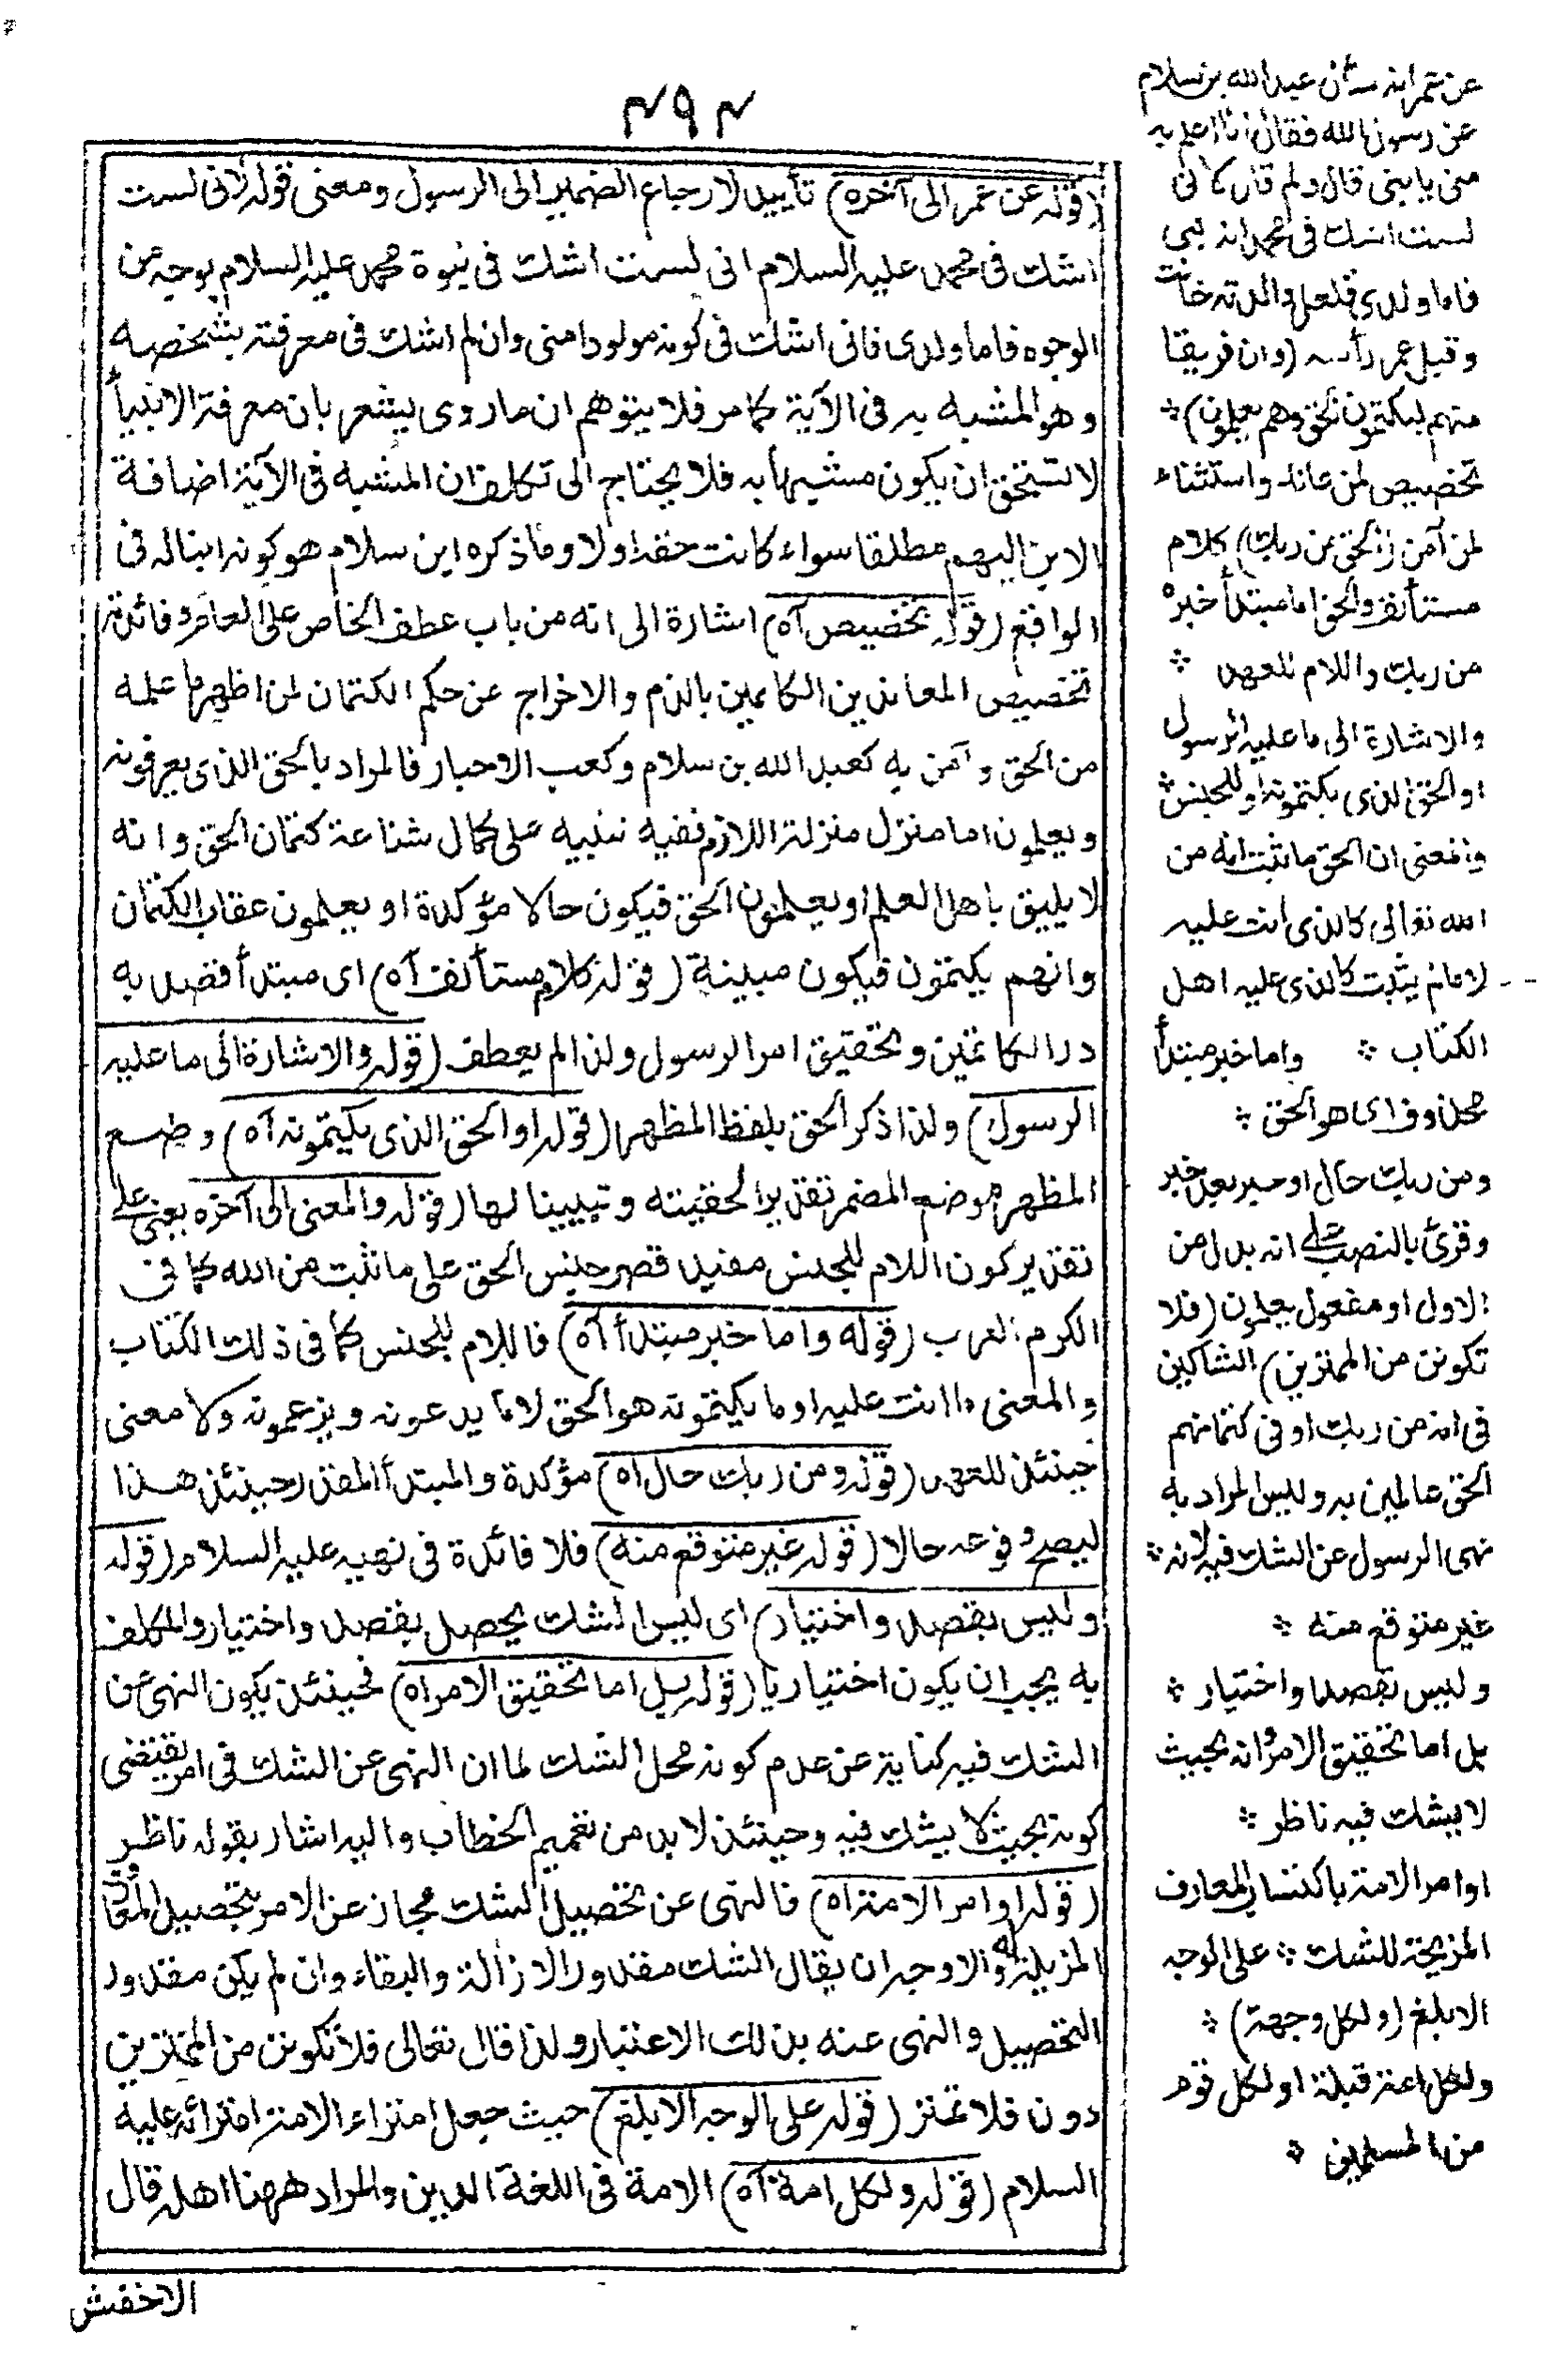 ٤٩٤
(قوله عن عمر الى آخره) تأييد لارجاع الضمير الى الرسول ومعنى قوله لانى لست
اشك فى محمد عليه السلام انى لست اشك فى نبوة محمد عليه السلام بوجه من
الوجوه فاما ولدى فانى اشك فى كونه مولودا منى وان لم اشك فى معرفته بشخصه
وهو المشبه به فى الآية كما مر فلا يتوهم ان ما روى يشعر بان معرفة الانبياء
لا تستحق ان يكون مشبها به فلا يحتاج الى تكلف ان المشبه فى الآية اضافة
الابن اليهم مطلقا سواء كانت حقة اولا وما ذكره ابن سلام هو كونه ابنا له فى
الواقع (قوله تخصيص آه) اشارة الى انه من باب عطف الخاص على العام وفائدته
تخصيص المعاندين الكاتمين بالذم والاخراج عن حكم الكتمان لمن اظهر ما علمه
من الحق وآمن به كعبد الله بن سلام وكعب الاحبار فالمراد بالحق الذى يعرفونه
ويعلمون اما منزل منزلة اللازم ففيه تنبيه على كمال شناعة كتمان الحق وانه
لا يليق باهل العلم او يعلمون الحق فيكون حالا مؤكدة او يعلمون عقاب الكتمان
وانهم يكتمون فيكون مبينة (قوله كلام مستأنف آه) اى مبتدأ قصد به
رد الكاتمين وتحقيق امر الرسول ولذا لم يعطف (قوله والاشارة الى ما عليه
الرسول) ولذا ذكر الحق بلفظ المظهر (قوله او الحق الذى يكتمونه آه) وضع
المظهر موضع المضمر تقديرا لحقيته وتبيينا لها (قوله والمعنى الى آخره يعنى على
تقدير كون اللام للجنس مفيد قصر جنس الحق على ما ثبت من الله كما فى
الكرم العرب (قوله واما خبر مبتدأ آه) فاللام للجنس كما فى ذلك الكتاب
والمعنى ما انت عليه او ما يكتمونه هو الحق لا ما يدعونه ويزعمونه ولا معنى
حينئذ للعهد (قوله ومن ربك حال آه) مؤكدة والمبتدأ المقدر حينئذ هذا
ليصح وقوعه حالا (قوله غير متوقع منه) فلا فائدة فى نهيه عليه السلام (قوله
وليس بقصد واختيار) اى ليس الشك يحصل بقصد واختيار والمكلف
به يجب ان يكون اختياريا (قوله بل اما تحقيق الامر آه) فحينئذ يكون النهى عن
الشك فيه كناية عن عدم كونه محل الشك لما ان النهى عن الشك فى امر يقتضى
كونه بحيث لا يشك فيه وحينئذ لا بد من تعميم الخطاب واليه اشار بقوله ناظر
(قوله او امر الامة آه) فالنهى عن تحصيل الشك مجاز عن الامر بتحصيل المعارف
المزيلة له والاوجه ان يقال الشك مقدور الازالة والبقاء وان لم يكن مقدور
التحصيل والنهى عنه بذلك الاعتبار ولذا قال تعالى فلا تكونن من الممترين
دون فلا تمتر (قوله على الوجه الابلغ) حيث جعل امتراء الامة امترائه عليه
السلام (قوله ولكل امة آه) الامة فى اللغة الدين والمراد ههنا اهله قال
الاخفش
عن عمر انه سأل عبد الله بن سلام
عن رسول الله فقال انا اعلم به
منى بابنى قال ولم قال لانى
لست اشك فى محمد انه نبى
فاما ولدى فلعل والدته خانت
وقبل عمر رأسه (وان فريقا
منهم ليكتمون الحق وهم يعلمون) *
تخصيص لمن عاند واستثناء
لمن آمن (الحق من ربك) كلام
مستأنف والحق اما مبتدأ خبره
من ربك واللام للعهد *
والاشارة الى ما عليه الرسول
او الحق الذى يكتمونه او للجنس *
والمعنى ان الحق ما ثبت انه من
الله تعالى كالذى انت عليه
لا ما لم يثبت كالذى عليه اهل
الكتاب * واما خبر مبتدأ
محذوف اى هو الحق *
ومن ربك حال او خبر بعد خبر
وقرئ بالنصب على انه بدل من
الاول او مفعول يعلمون (فلا
تكونن من الممترين) الشاكين
فى انه من ربك او فى كتمانهم
الحق عالمين به وليس المراد به
نهى الرسول عن الشك فيه لانه *
غير متوقع منه *
وليس بقصد واختيار *
بل اما تحقيق الامر وانه بحيث
لا يشك فيه ناظر *
او امر الامة باكتساب المعارف
المزيحة للشك * على الوجه
الابلغ (ولكل وجهة) *
ولكل امة قبلة او لكل قوم
من المسلمين *